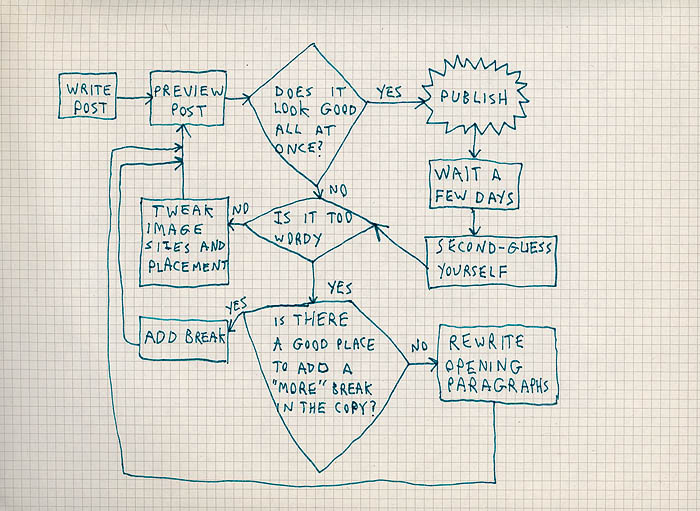 WRITE
POST
PREVIEW
POST
DOES IT
LOOK GOOD
ALL AT
ONCE?
YES
PUBLISH
NO
WAIT A
FEW DAYS
SECOND-GUESS
YOURSELF
IS IT TOO
WORDY
NO
TWEAK
IMAGE
SIZES AND
PLACEMENT
YES
IS THERE
A GOOD PLACE
TO ADD A
"MORE" BREAK
IN THE COPY?
YES
ADD BREAK
NO
REWRITE
OPENING
PARAGRAPHS